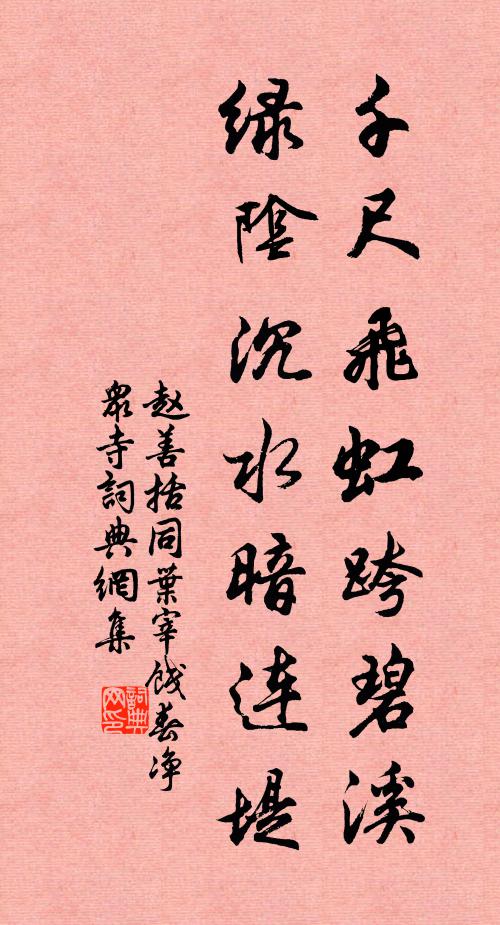 千尺飛虹跨碧溪
绿陰沉水暗連堤
赵善括同葉宰餞春净
衆寺詞典網集
詞典網印